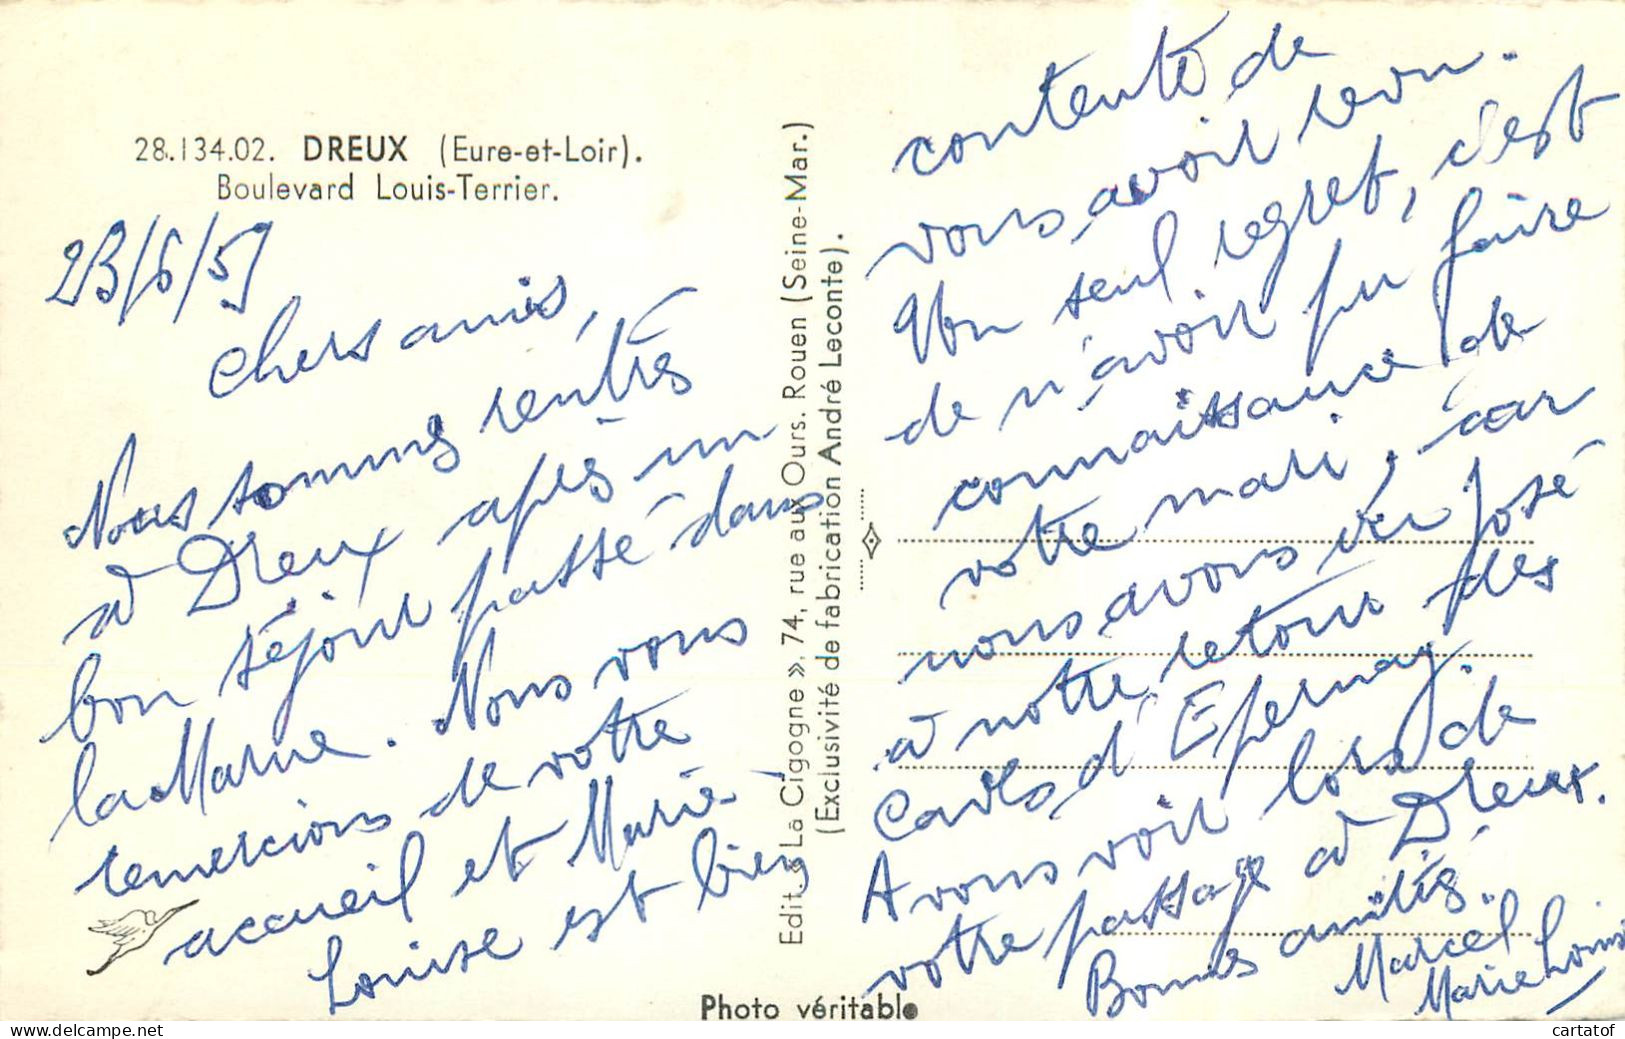 28.134.02. DREUX (Eure-et-Loir).
Boulevard Louis-Terrier.
23/6/59
Chers amis,
Nous sommes rentrés
à Dreux après un
bon séjour passé dans
la Marne. Nous vous
remercions de votre
accueil et Marie
Louise est bien
contente de
vous avoir revu.
Un seul regret, c'est
de n'avoir pu faire
connaissance de
votre mari, car
nous avons vu José
à notre retour des
Caves d'Epernay.
A vous voir lors de
votre passage à Dreux.
Bonnes amitiés.
Marcel
Marie Louise
Edit. « La Cigogne », 74, rue aux Ours. Rouen (Seine-Mar.)
(Exclusivité de fabrication André Leconte).
Photo véritable
cartatof